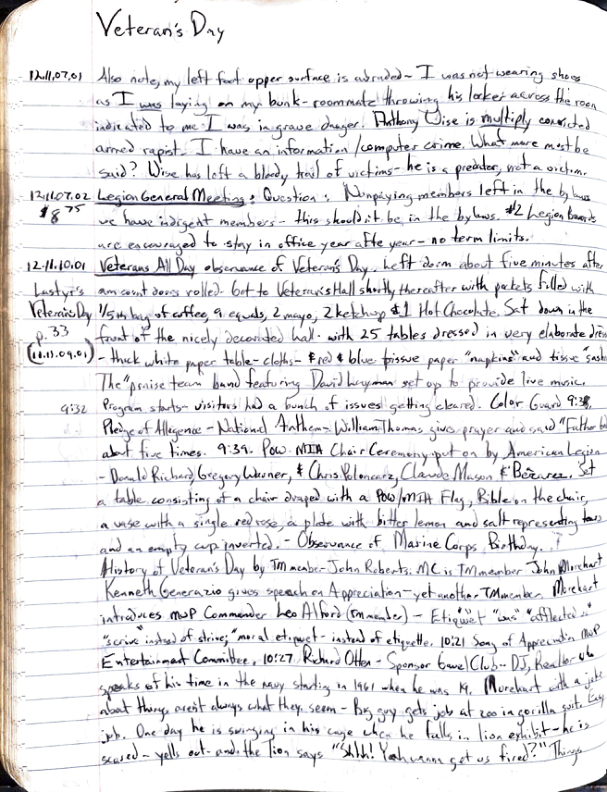 Veteran's Day
12.11.07.01 Also note, my left foot upper surface is abraded - I was not wearing shoes
as I was laying on my bunk - roommate throwing his locker across the room
indicated to me I was in grave danger. Anthony Wise is multiply convicted
armed rapist. I have an information/computer crime. What more must be
said? Wise has left a bloody trail of victims - he is a predator, not a victim.
12.11.07.02 Legion General Meeting: Question: Nonpaying members left in the bylaws
$8.75 we have indigent members - this should it be in the bylaws. #2 Legion Boards
are encouraged to stay in office year after year - no term limits.
12.11.10.01 Veterans All Day observance of Veteran's Day. Left dorm about five minutes after
Last yr's am count doors rolled. Got to Veteran's Hall shortly thereafter with pockets filled with
Veteran's Day 1/5th bag of coffee, 9 equals, 2 mayo, 2 ketchup & 1 Hot Chocolate. Sat down in the
p. 33 front of the nicely decorated hall - with 25 tables dressed in very elaborate dress
(11.11.09.01) - thick white paper table-cloths - & red & blue tissue paper "napkins" and tissue "sash
The "praise team band featuring David Layman set up to provide live music.
9:32 Program starts - visitors had a bunch of issues getting cleared. Color Guard
Pledge of Allegence - National Anthem - William Thomas gives prayer and said "Father
about five times. 9:39. POW-MIA Chair Ceremony put on by American Legion
- Donald Richard, Gregory Warner, & Chris Claude Mason & Set
a table consisting of a chair draped with a POW/MIA Flag, Bible on the chair,
a vase with a single red rose, a plate with bitter lemon and salt representing tears
and an empty cup inverted. - Observance of Marine Corps Birthday.
History of Veteran's Day by TM member John Roberts. MC is TM member John Morchart
Kenneth Generazio gives speech on Appreciation - yet another TM member. Morchart
introduces MWP Commander Leo Alford (TM member) - Etiquet "was" "afflected"
"scrive" instead of strive; "moral etiquet - instead of etiquette. 10:21 Song of Appreciation MWP
Entertainment Committee. 10:27 Richard Otten - Sponsor Gavel Club - DJ, Realtor who
speaks of his time in the navy starting in 1961 when he was 19. Morchart with a joke
about things aren't always what they seem - Big guy gets job at zoo in gorilla suit. Easy
job. One day he is swinging in his cage when he falls in lion exhibit - he is
scared - yells out - and the lion says "Shhh! Yeah wanna get us fired?" Things